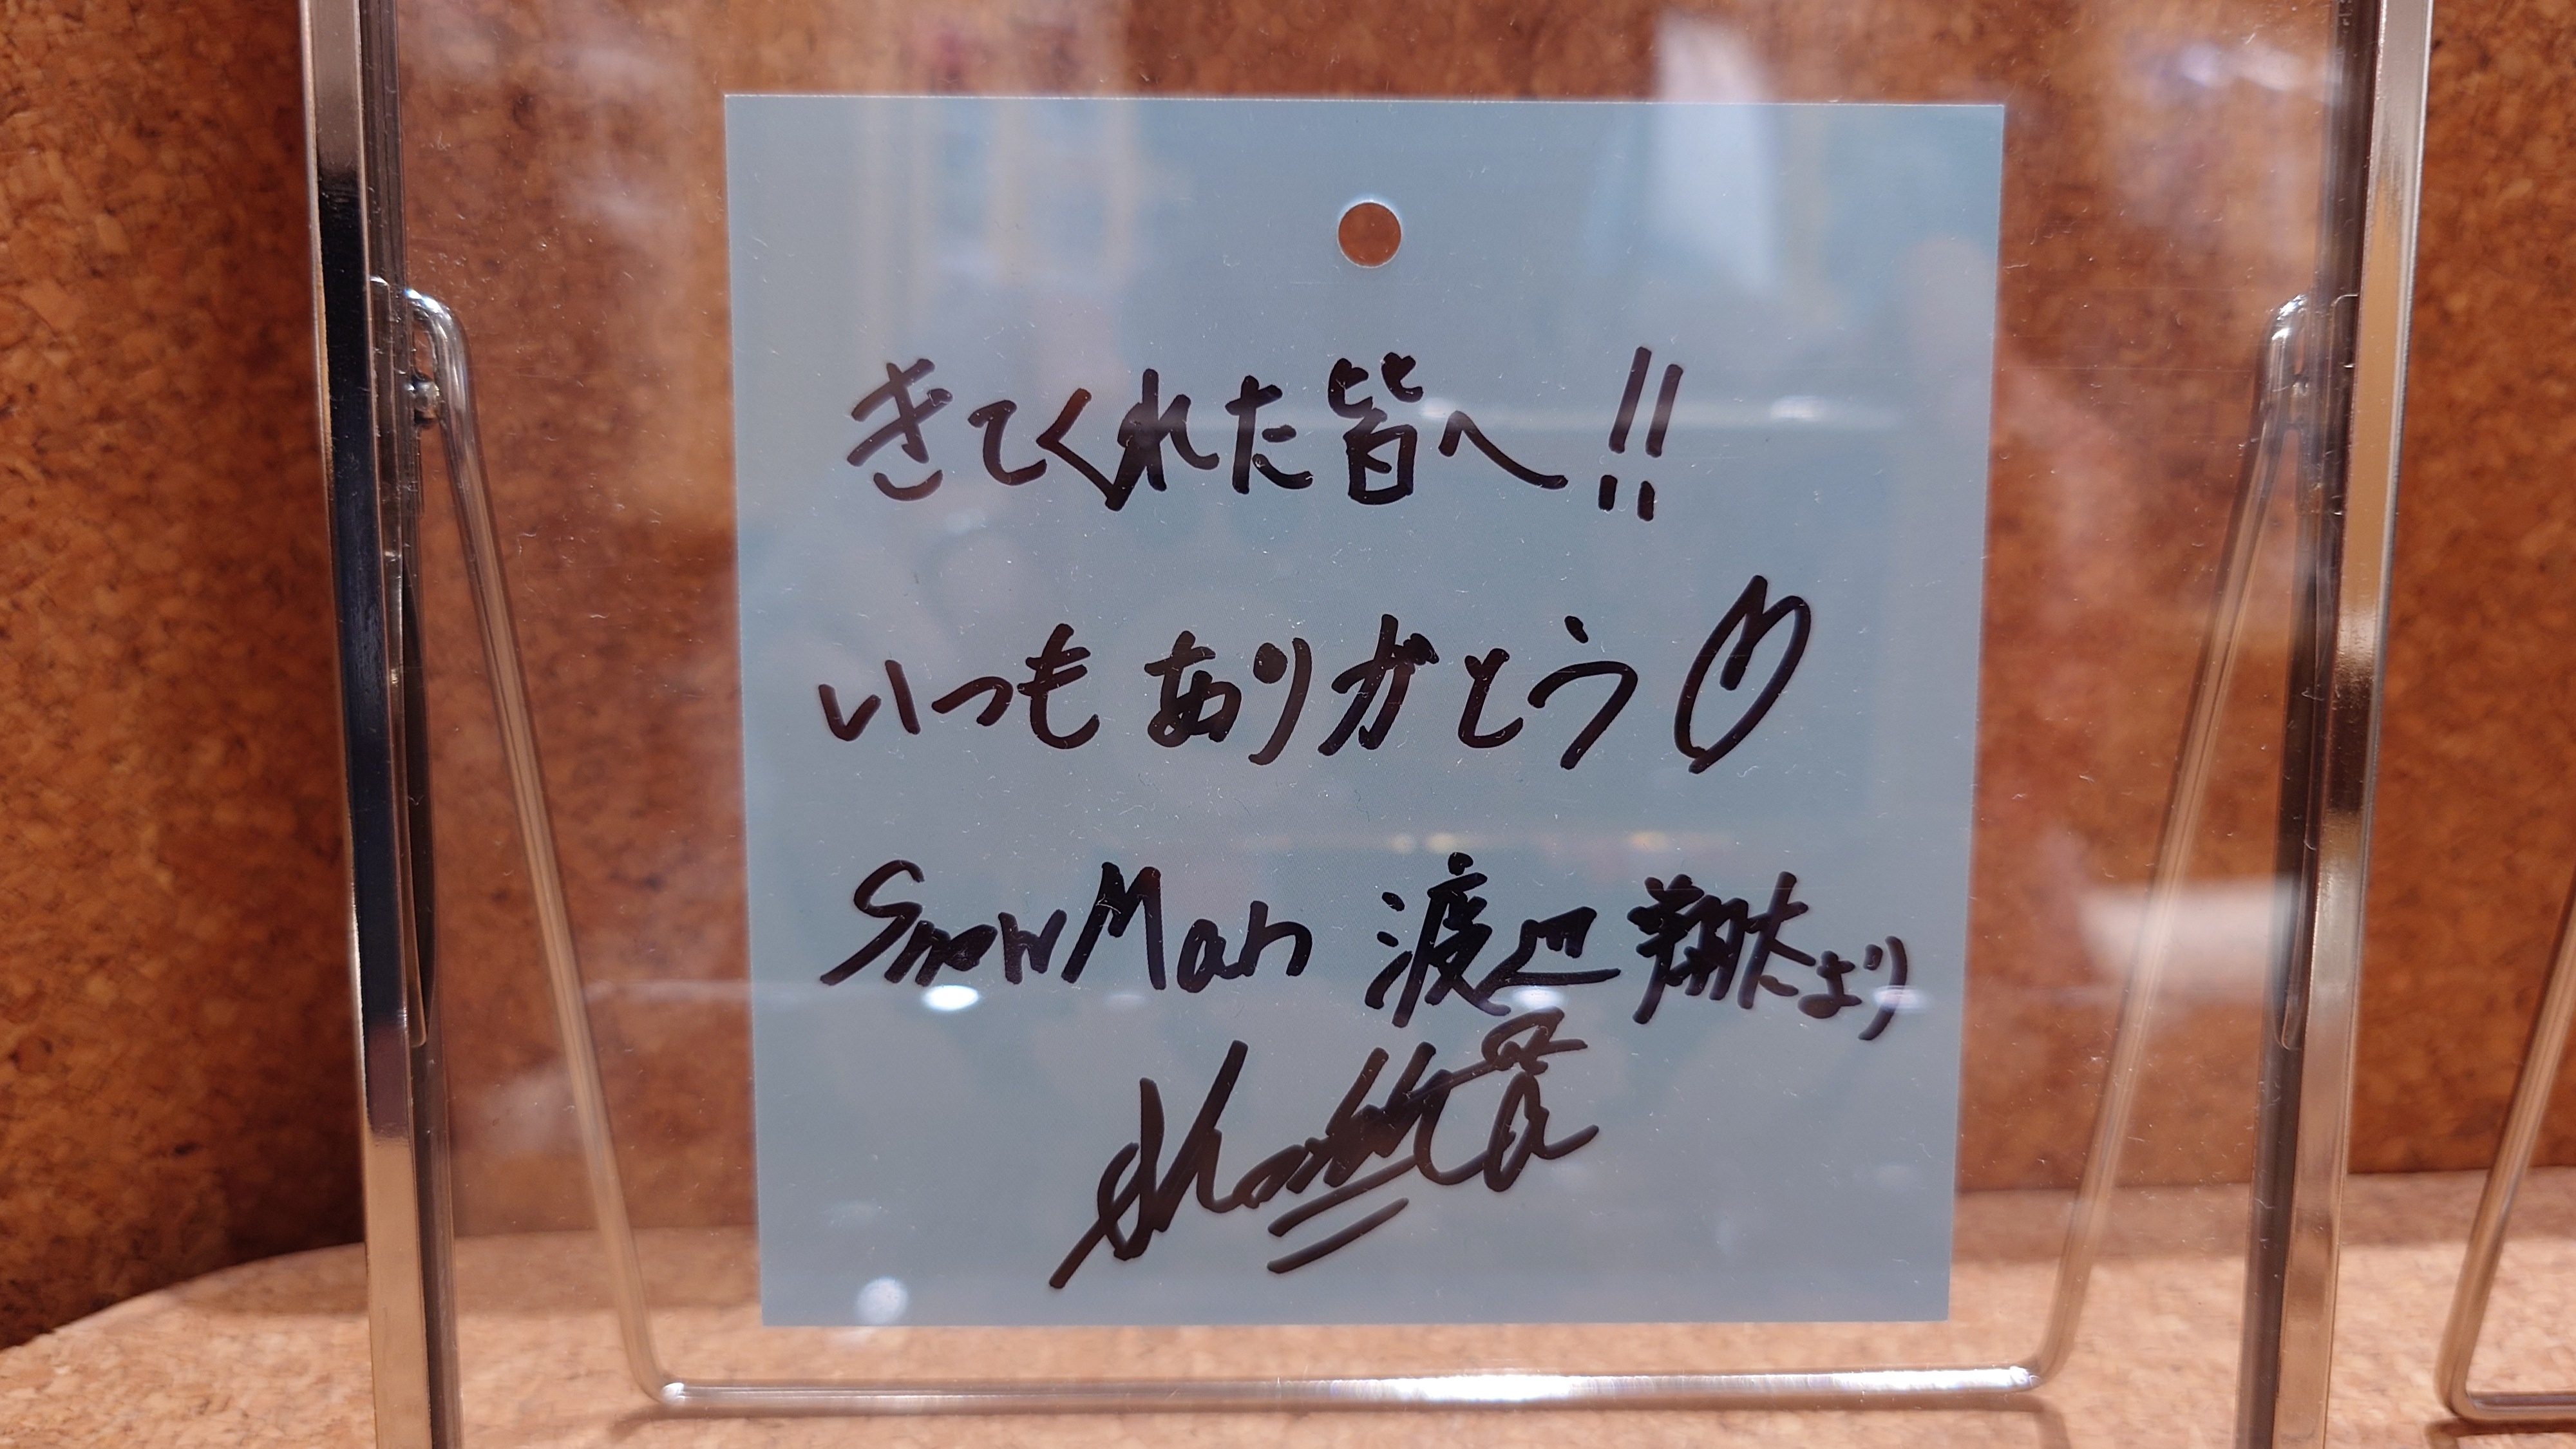 きてくれた皆へ!!
いつもありがとう♡
Snow Man 渡辺 翔太より